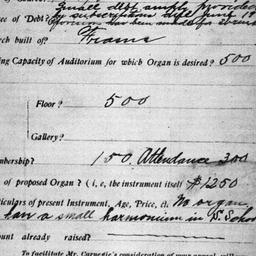 Small debt amply provided
by subscriptions until June 19
of Debt?
rch built of? Frame
ing Capacity of Auditorium for which Organ is desired? 500
Floor? 500
Gallery?
mbership? 150 Attendance 300
of proposed Organ? (i.e., the instrument itself $1250
rticulars of present Instrument, Age, Price, etc. No organ
a small harmonium in S. School
ount already raised?
To facilitate Mr. Carnegie's consideration of your appeal, will